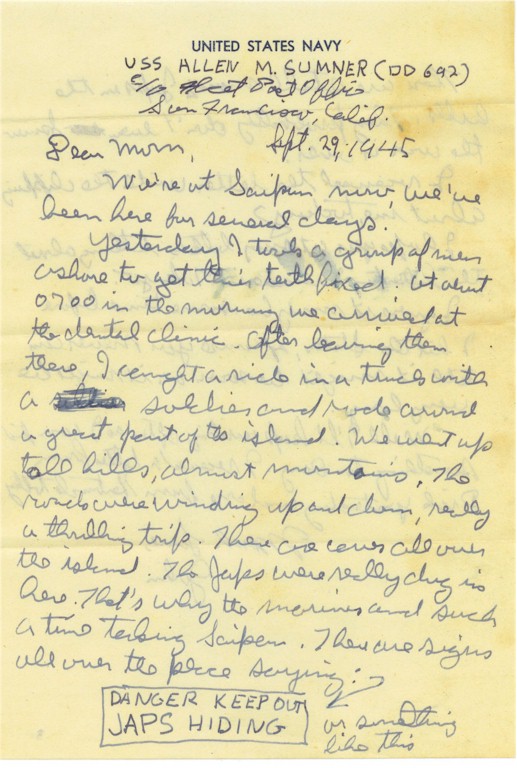 UNITED STATES NAVY
USS ALLEN M. SUMNER (DD 692)
c/o Fleet Post Office
San Francisco, Calif.
Sept. 29, 1945
Dear Mom,
We're at Saipan now, we've
been here for several days.
Yesterday I took a group of men
ashore to get their teeth fixed. At about
0700 in the morning we arrived at
the dental clinic. After leaving them
there, I caught a ride in a truck with
a soldier and rode around
a great part of the island. We went up
tall hills, almost mountains. The
roads were winding up and down, really
a thrilling trip. There are caves all over
the island. The Japs were really dug in
here. That's why the marines had such
a time taking Saipan. There are signs
all over the place saying:
DANGER KEEP OUT
JAPS HIDING
or something
like this